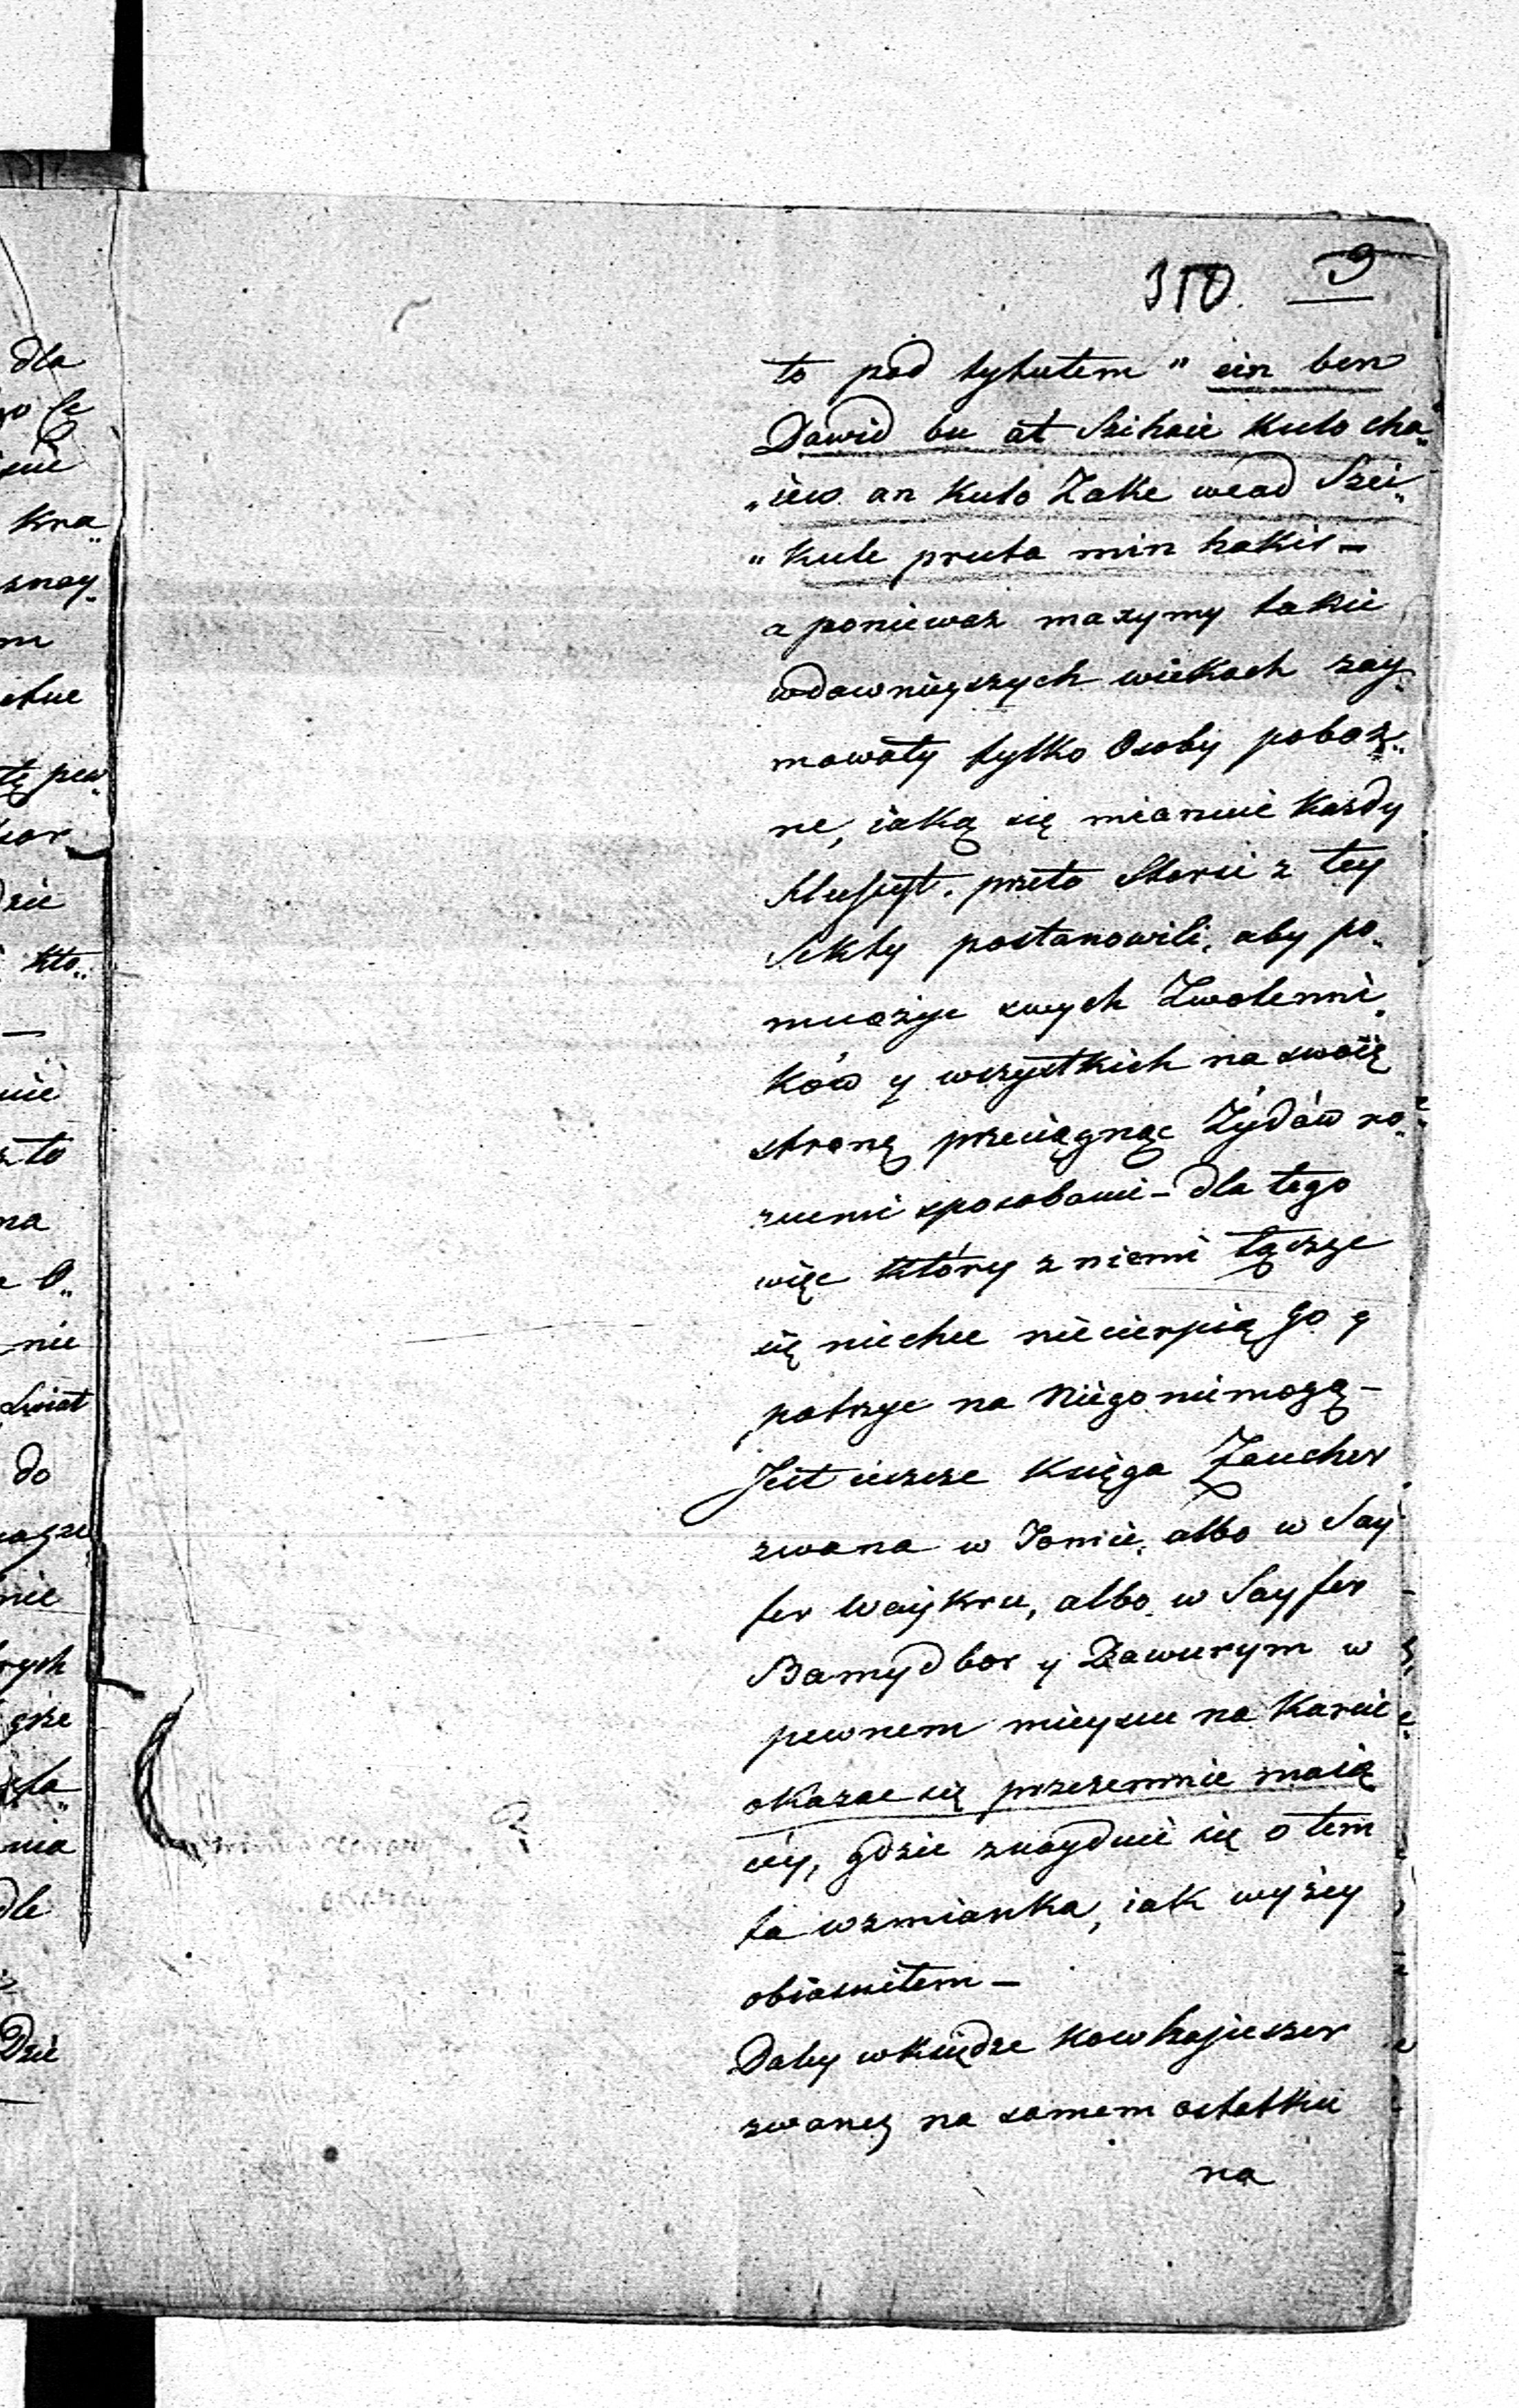 350. 9
to pod tytułem „ ein ben
Dawid bu at Szihaie kulo cha„
„iew an kulo Zake wead Szei„
„kule pruta min hakis –
a ponieważ maxymy takie
wdawnieyszych wiekach zay„
mowały tylko Osoby poboż„
ne, iaką się mianuie każdy
Hussyt. przeto Starsi z tey
Sekty postanowili, aby po„
mnożyc swych Zwolenni„
ków y wszystkich na swoię
stronę przeciągnąc Żydów ro„
znemi sposobami – dla tego
więc który z niemi łączyc
się niechce niecierpią go y
patrzyc na Niego niemogą –
Jest ieszcze Księga Zaucher
zwana w Tomie, albo w Say
fer Waykru, albo w Sayfer
Bamydbor y Dawurym w
pewnem mieyscu na Karcie
okazac się przezemnie maią
cey, gdzie znayduie się o tem
ta wzmianka, iak wyżey
obiasniłem –
Daley wksiędze Kawhajeszer
zwaney na samem ostatku
na
dla
kra„
znay„
m
tę pew„
dzie
kto„
–
nie
to
na
nie
Swiat
do
nie
nia
dle
Dzie